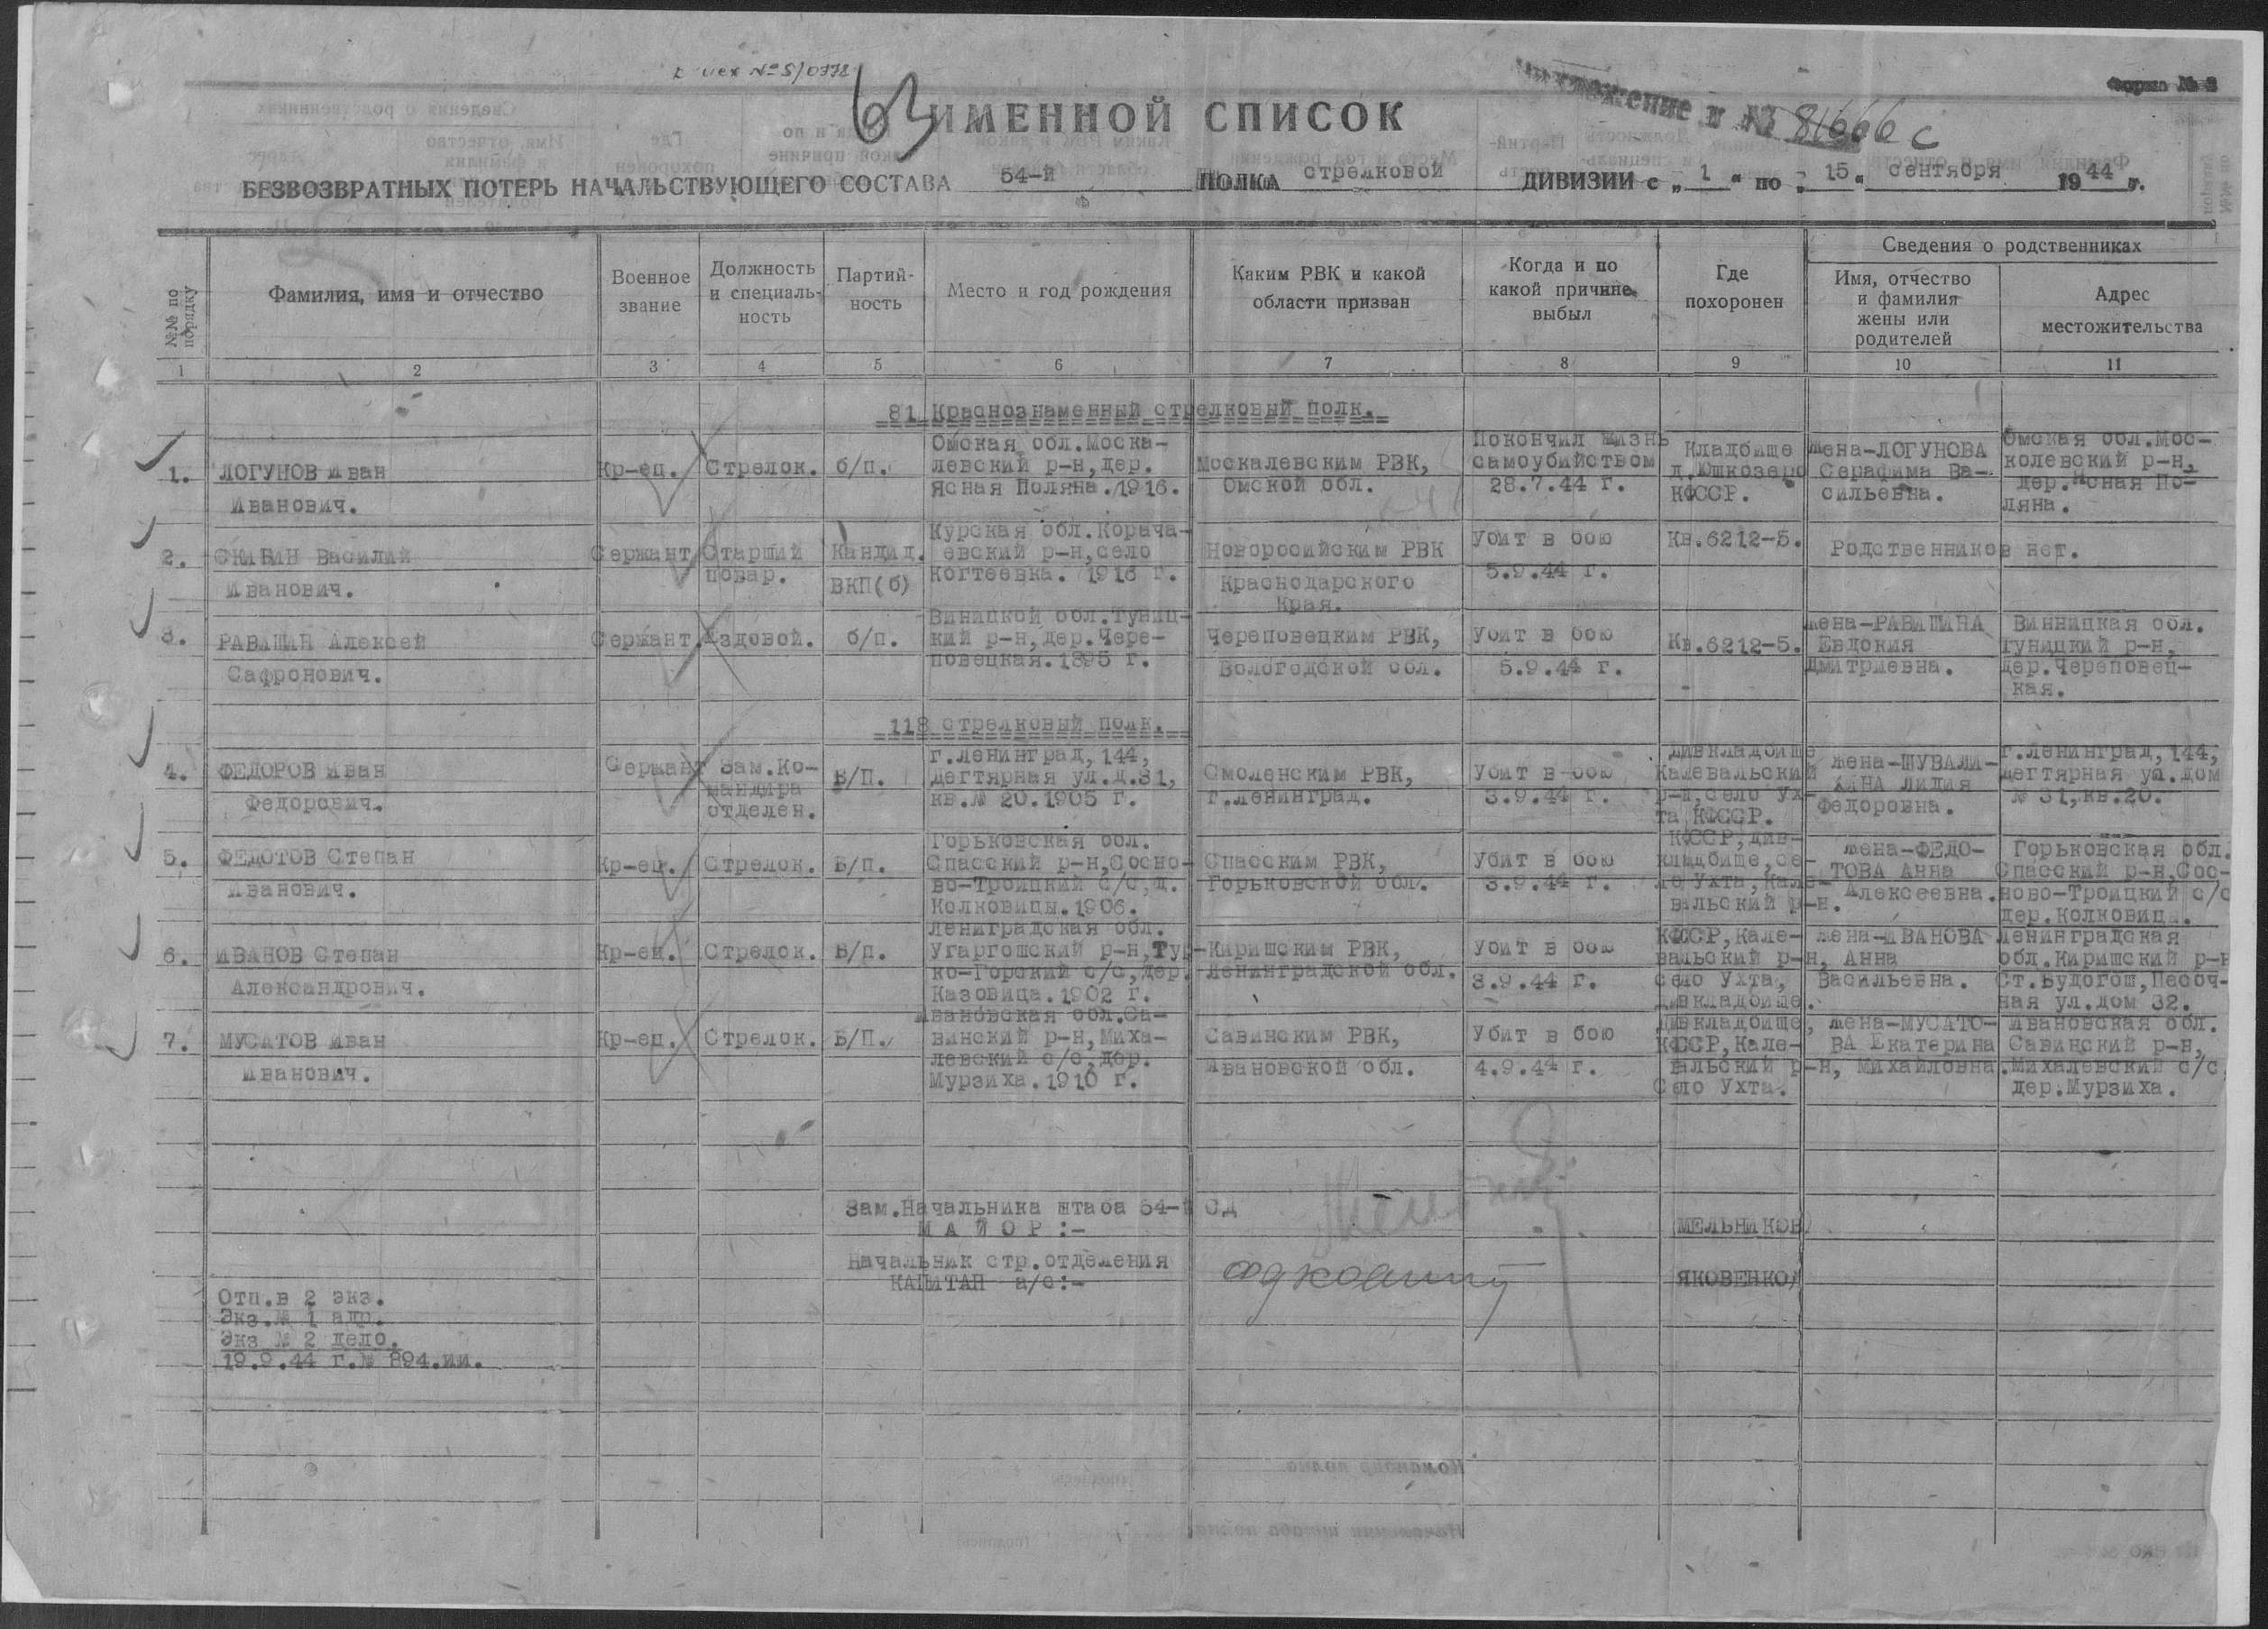 к исх № S/0772
63
ИМЕННОЙ СПИСОК
Приложение к № 81666 с
Форма № 2
БЕЗВОЗВРАТНЫХ ПОТЕРЬ НАЧАЛЬСТВУЮЩЕГО СОСТАВА 54-й ПОЛКА стрелковой ДИВИЗИИ с „1“ по „15“ сентября 1944 г.
№№ по порядку
Фамилия, имя и отчество
Военное звание
Должность и специаль- ность
Партий- ность
Место и год рождения
Каким РВК и какой области призван
Когда и по какой причине выбыл
Где похоронен
Сведения о родственниках
Имя, отчество и фамилия жены или родителей
Адрес местожительства
1 2 3 4 5 6 7 8 9 10 11
81 Краснознаменный стрелковый полк.
1.
ЛОГУНОВ Иван
Иванович.
Кр-ец.
Стрелок.
б/п.
Омская обл.Моска-
левский р-н,дер.
Ясная Поляна.1916.
Москалевским РВК,
Омской обл.
Покончил жизнь
самоубийством
28.7.44 г.
Кладбище
д.Юшкозеро
КФССР.
Жена-ЛОГУНОВА
Серафима Ва-
сильевна.
Омская обл.Мос-
колевский р-н,
дер.Ясная По-
ляна.
2.
СКИБИН Василий
Иванович.
Сержант
Старший
повар.
Кандид.
ВКП(б)
Курская обл.Корача-
евский р-н,село
Когтеевка. 1916 г.
Новоросийским РВК
Краснодарского
Края.
Убит в бою
5.9.44 г.
Кв.6212-5.
Родственников нет.
3.
РАВАШИН Алексей
Сафронович.
Сержант.
Ездовой.
б/п.
Виницкой обл.Туниц-
кий р-н,дер.Чере-
повецкая.1895 г.
Череповецким РВК,
Вологодской обл.
Убит в бою
5.9.44 г.
Кв.6212-5.
Жена-РАВАШИНА
Евдокия
Дмитриевна.
Винницкая обл.
Туницкий р-н,
дер.Череповец-
кая.
118 стрелковый полк.
4.
ФЕДОРОВ Иван
Федорович.
Сержант
Зам.Ко-
мандира
отделен.
Б/П.
г.Ленинград,144,
Дегтярная ул.д.31,
кв.№ 20.1905 г.
Смоленским РВК,
г.Ленинград.
Убит в бою
3.9.44 г.
Дивкладбище
Калевальский
р-н,село Ух-
та КФССР.
Жена-ШУВАЛИ-
ХИНА Лидия
Федоровна.
г.Ленинград,144,
Дегтярная ул.дом
№ 31,кв.20.
5.
ФЕДОТОВ Степан
Иванович.
Кр-ец.
Стрелок.
Б/п.
Горьковская обл.
Спасский р-н,Сосно-
во-Троицкий с/с,д.
Колковицы.1906.
Спасским РВК,
Горьковской обл.
Убит в бою
3.9.44 г.
КФССР,див-
кладбище,се-
ло Ухта,Кале-
вальский р-н.
Жена-ФЕДО-
ТОВА Анна
Алексеевна.
Горьковская обл.
Спасский р-н,Сос-
ново-Троицкий с/с
дер.Колковицы.
6.
ИВАНОВ Степан
Александрович.
Кр-ец.
Стрелок.
Б/п.
Ленинградская обл.
Угаргошский р-н,Тур-
ко-Горский с/с,дер.
Казовица.1902 г.
Киришским РВК,
Ленинградской обл.
Убит в бою
3.9.44 г.
КФССР,Кале-
вальский р-н,
село Ухта,
дивкладбище.
Жена-ИВАНОВА
Анна
Васильевна.
Ленинградская
обл.Киришский р-н
Ст.Будогош,Песоч-
ная ул.дом 32.
7.
МУСАТОВ Иван
Иванович.
Кр-ец.
Стрелок.
Б/П.
Ивановская обл.Са-
винский р-н,Миха-
левский с/с,дер.
Мурзиха.1910 г.
Савинским РВК,
Ивановской обл.
Убит в бою
4.9.44 г.
Дивкладбище,
КФССР,Кале-
вальский р-н,
Село Ухта.
Жена-МУСАТО-
ВА Екатерина
Михайловна.
Ивановская обл.
Савинский р-н,
Михалевский с/с,
дер.Мурзиха.
Зам.Начальника штаба 54-й СД
МАЙОР:-
/МЕЛЬНИКОВ/
Начальник стр.отделения
КАПИТАН а/с:-
/ЯКОВЕНКО/
Отп.в 2 экз.
Экз.№ 1 адр.
Экз № 2 дело.
19.9.44 г.№ 894.ии.